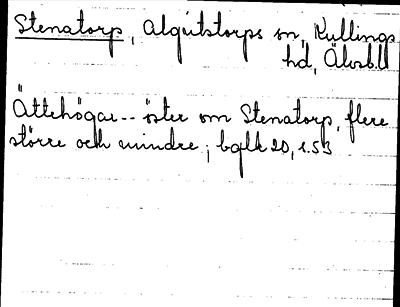 Stenatorp, Algutstorps sn, Kullings
hd, Älvsb.ll
Ättehögar -- öster om Stenatorp, flere
större och mindre; bqlk 20, s.53